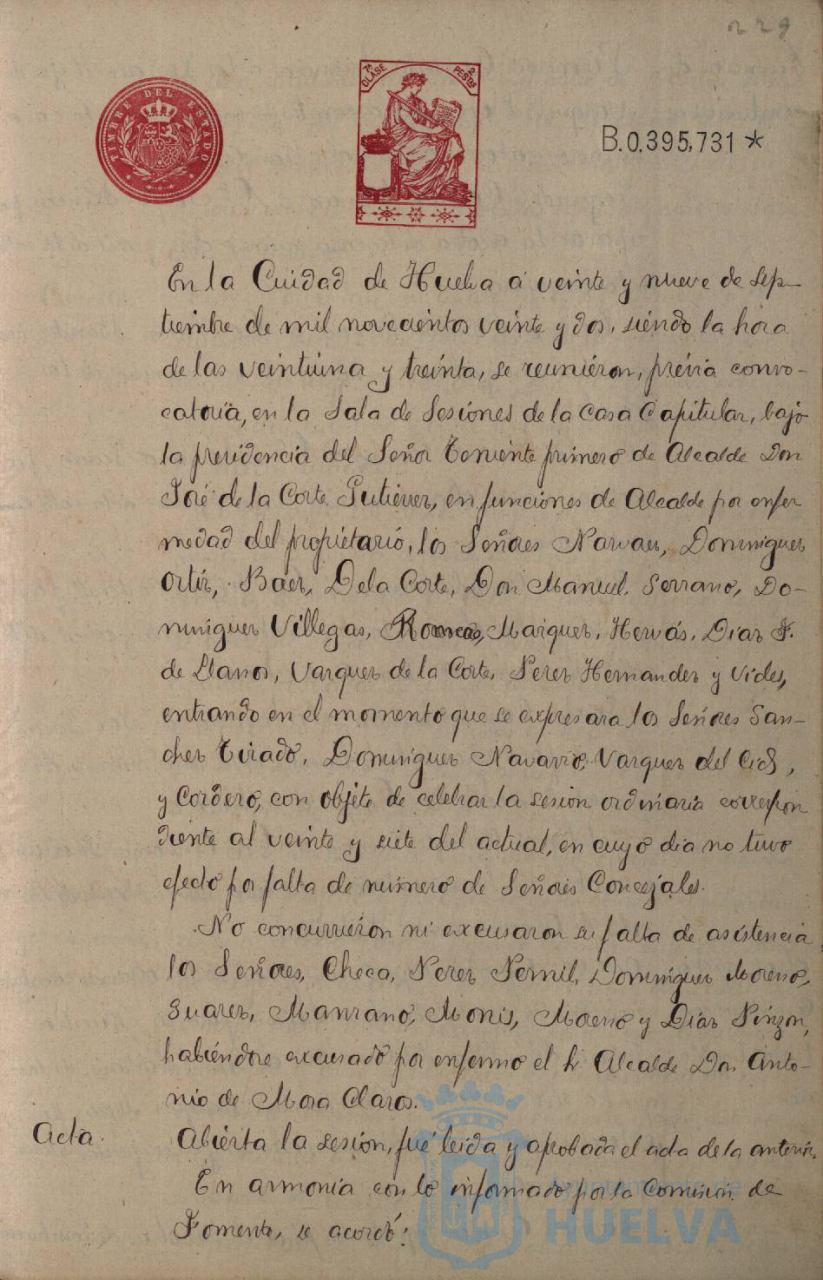 229
TIMBRE DEL ESTADO
7ª CLASE 2 PESTAS
B.0,395,731 *
En la Cuidad de Huelva á veinte y nueve de Sep-
tiembre de mil novecientos veinte y dos, siendo la hora
de las veintiuna y treinta, se reunieron, prévia convo-
catoria, en la Sala de Sesiones de la Casa Capitular, bajo
la presidencia del Señor Teniente primero de Alcalde Don
José de la Corte Gutiérrez, en funciones de Alcalde por enfer
medad del propietario, los Señores Narvaez, Dominguez
Ortíz, Baez, De la Corte, Don Manuel, Serrano, Do-
minguez Villegas, Marquez, Hervás, Diaz F.
de Llanos, Vazquez de la Corte, Perez Hernandez y Vides,
entrando en el momento que se expresara los Señores San-
chez Tirado, Dominguez Navarro, Vazquez del Cid,
y Cordero, con objeto de celebrar la sesion ordinaria correspon
diente al veinte y siete del actual, en cuyo dia no tuvo
efecto por falta de número de Señores Concejales.
No concurrieron ni excusaron su falta de asistencia
los Señores, Checa, Perez Pomil, Dominguez Moreno,
Suarez, Manzano, Monis, Moreno y Diaz Pinzon,
habiéndose excusado por enfermo el Sr Alcalde Don Anto-
nio de Mora Claros.
Acta. Abierta la sesion, fué leida y aprobada el acta de la anterior.
En armonía con lo informado por la Comision de
Fomento, se acordó:
Ayuntamiento de
HUELVA